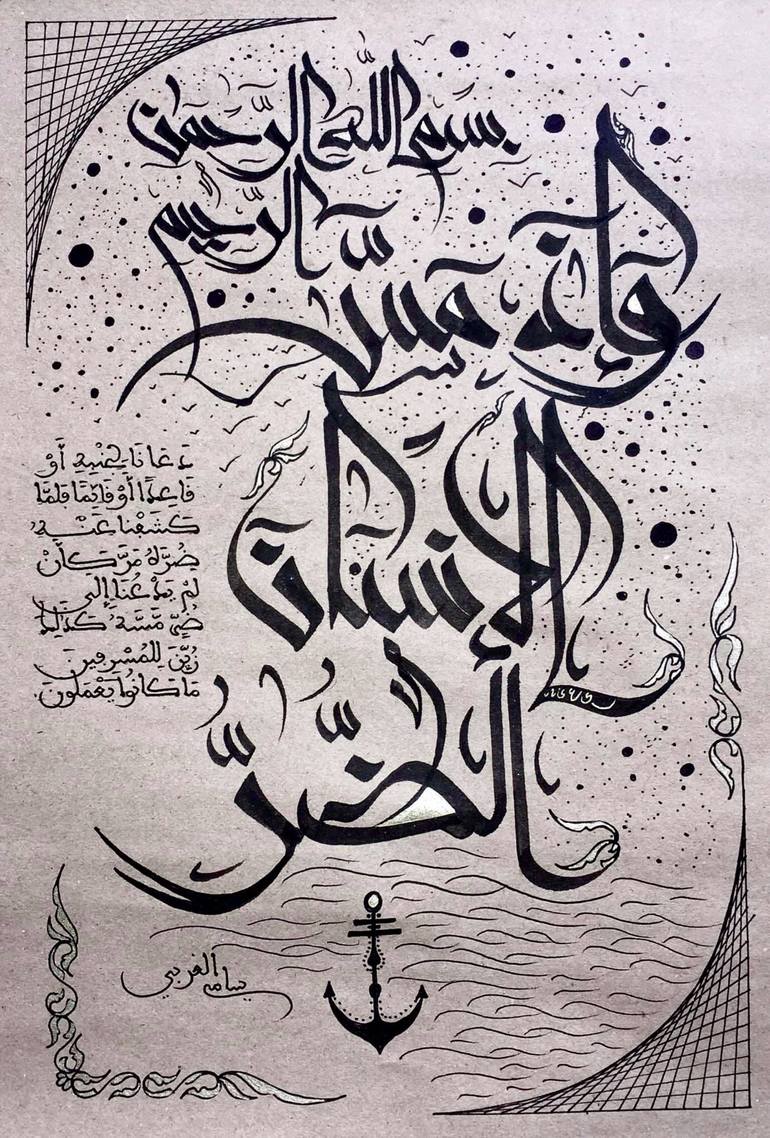 بِسْمِ اللَّهِ الرَّحْمَنِ
الرَّحِيمِ
وَإِذَا مَسَّ
الْإِنسَانَ
الضُّرُّ
دَعَانَا لِجَنْبِهِ أَوْ
قَاعِدًا أَوْ قَائِمًا فَلَمَّا
كَشَفْنَا عَنْهُ
ضُرَّهُ مَرَّ كَأَنْ
لَمْ يَدْعُنَا إِلَى
ضُرٍّ مَسَّهُ كَذَلِكَ
زُيِّنَ لِلْمُسْرِفِينَ
مَا كَانُوا يَعْمَلُونَ.
سامي الغربي